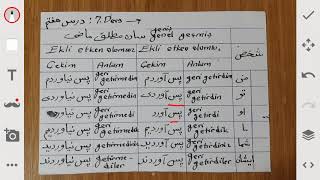 درس هفتم : 7.Ders →
ماضی مطلق ساده geniş genel geçmiş
شخص Ekli etken olumlu Ekli etken olumsuz
Anlam Çekim Anlam Çekim
من geri getirdim پس آوردم geri getirmedim پس نیاوردم
تو geri getirdin پس آوردی geri getirmedin پس نیاوردی
او geri getirdi پس آورد geri getirmedi پس نیاورد
ما geri getirdik پس آوردیم geri getirmedik پس نیاوردیم
شما geri getirdiniz پس آوردید geri getirmediniz پس نیاوردید
ایشان geri getirdiler پس آوردند geri getirmediler پس نیاوردند